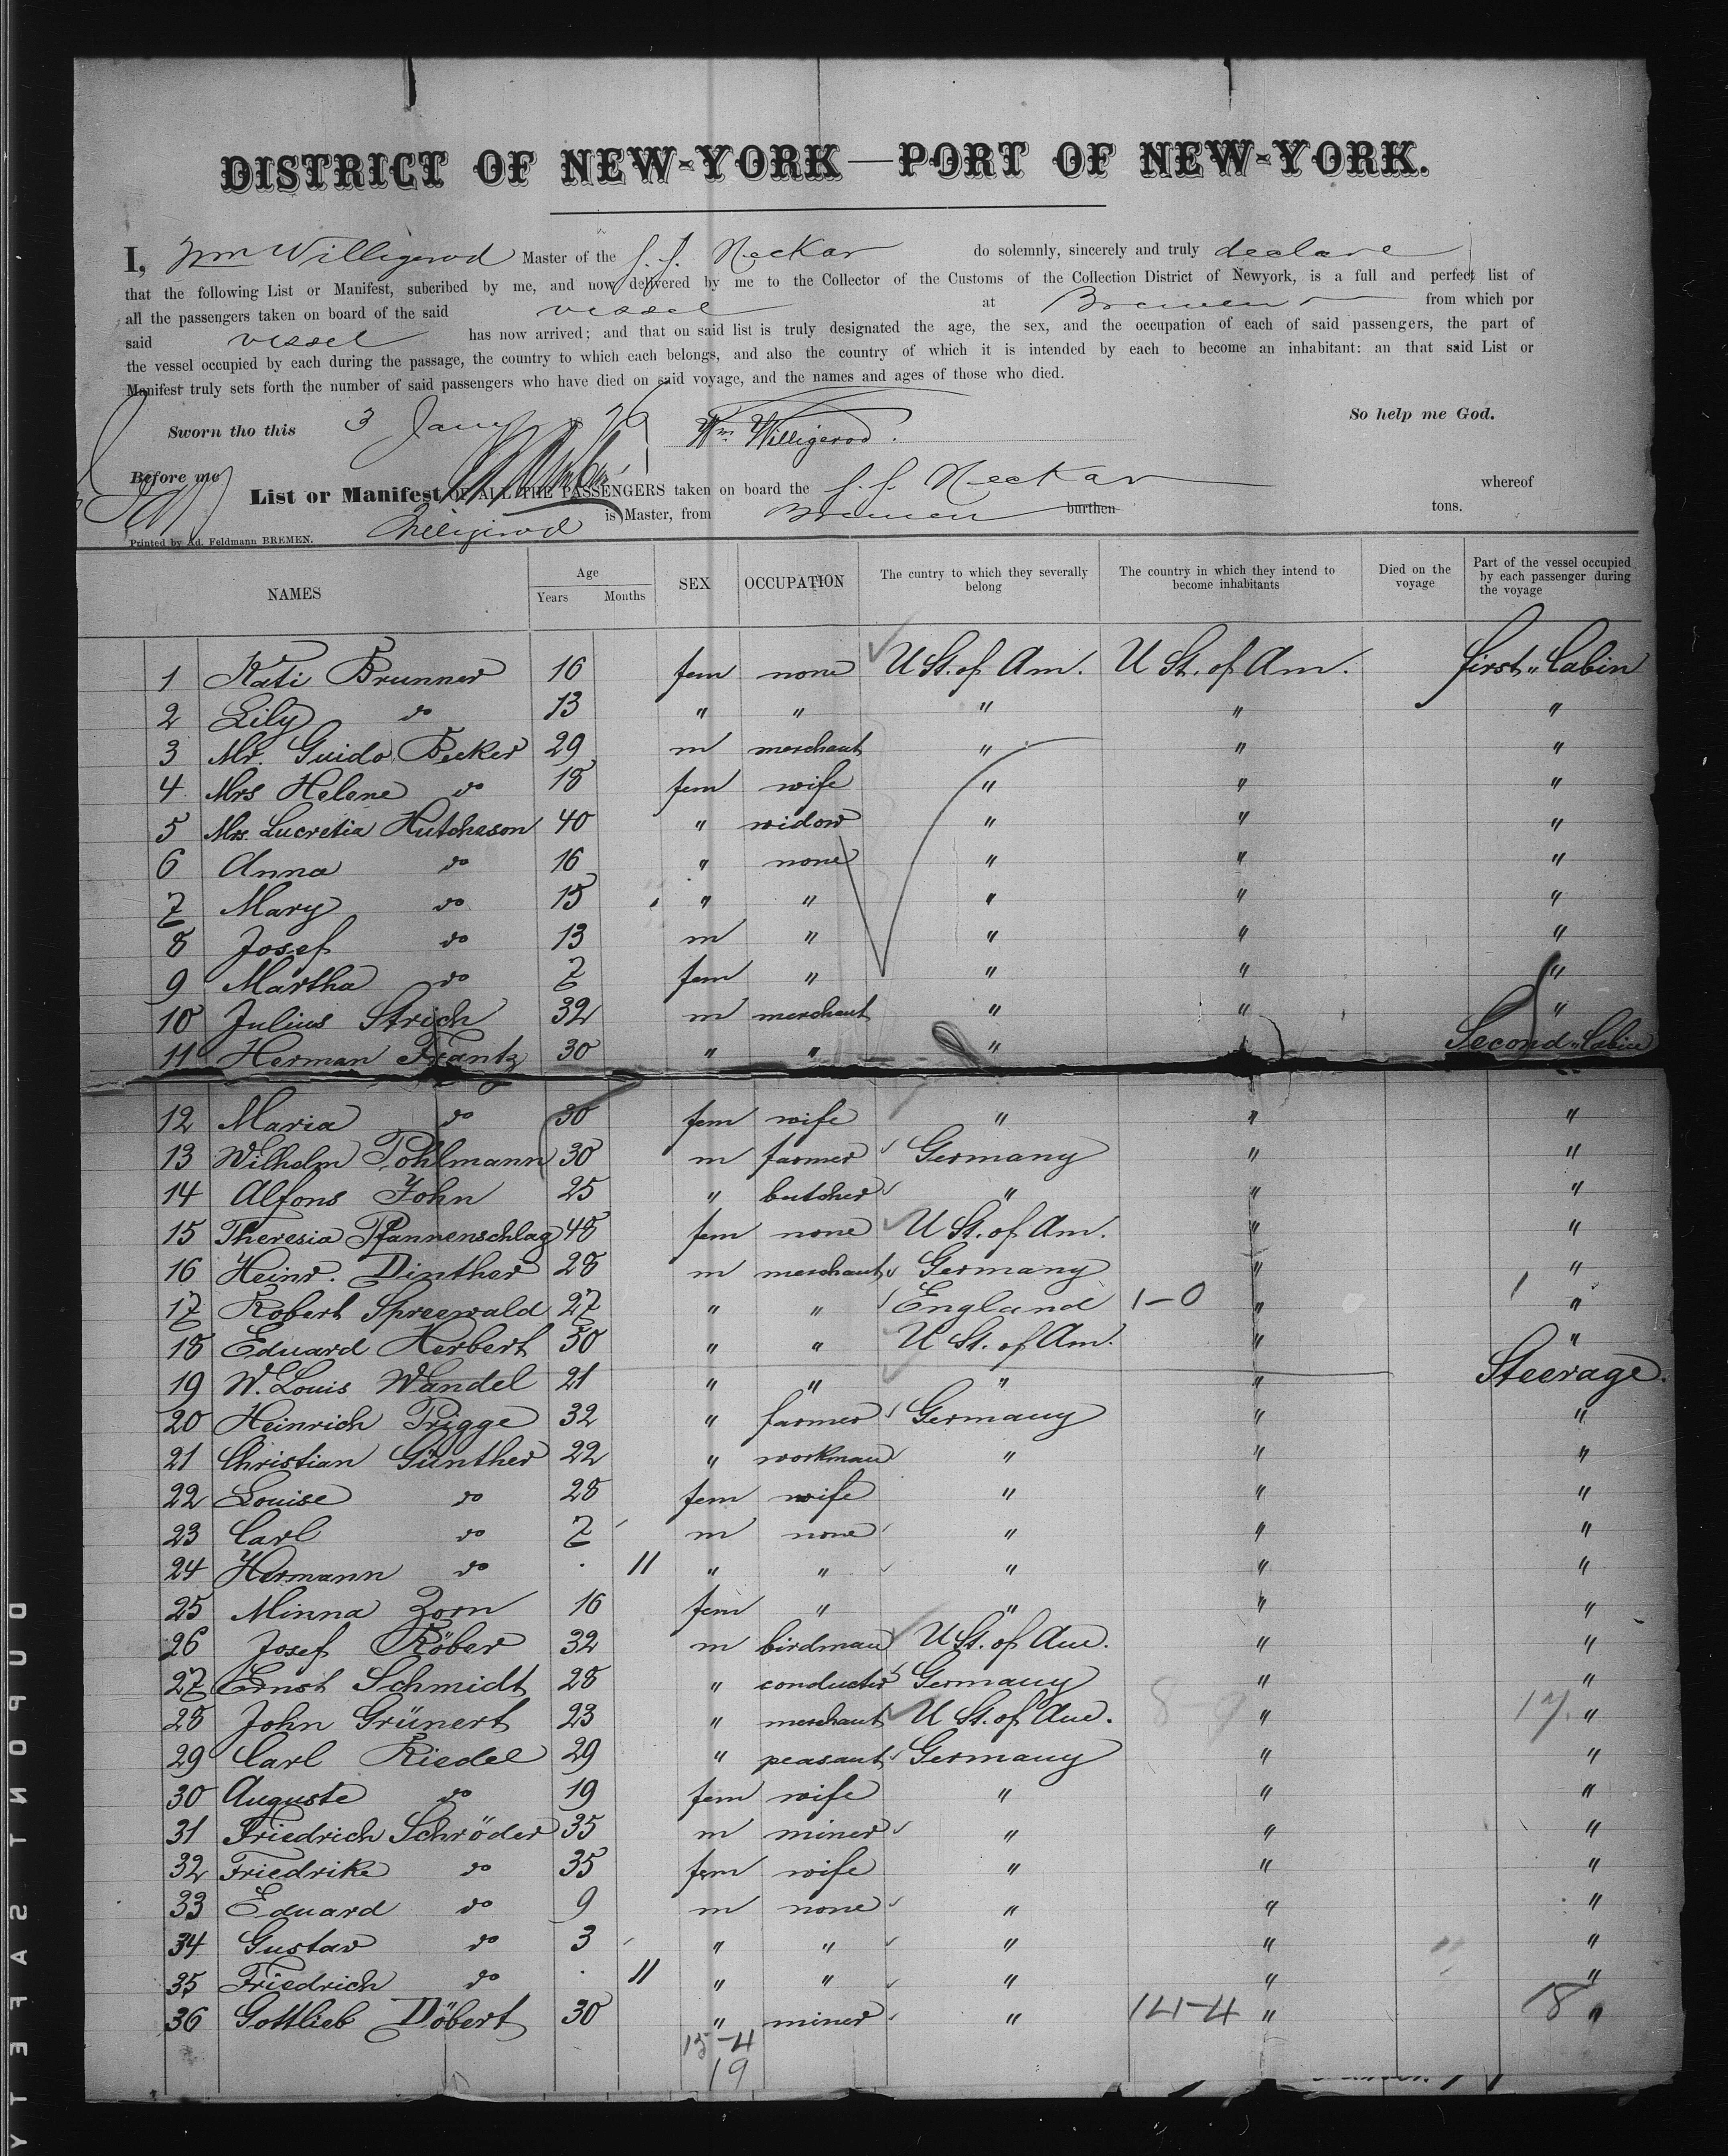 DISTRICT OF NEW-YORK—PORT OF NEW-YORK.
I, Wm Willigerod Master of the S. S. Neckar do solemnly, sincerely and truly declare
that the following List or Manifest, subcribed by me, and now delivered by me to the Collector of the Customs of the Collection District of Newyork, is a full and perfect list of
all the passengers taken on board of the said vessel at Bremen from which por
said vessel has now arrived; and that on said list is truly designated the age, the sex, and the occupation of each of said passengers, the part of
the vessel occupied by each during the passage, the country to which each belongs, and also the country of which it is intended by each to become an inhabitant: an that said List or
Manifest truly sets forth the number of said passengers who have died on said voyage, and the names and ages of those who died.
So help me God.
Sworn tho this 3 Jany 79 Wm. Willigerod.
Before me
List or Manifest OF ALL THE PASSENGERS taken on board the S. S. Neckar whereof
Willigerod is Master, from Bremen burthen tons.
Printed by Ad. Feldmann BREMEN.
NAMES Age Years Months SEX OCCUPATION The cuntry to which they severally belong The country in which they intend to become inhabitants Died on the voyage Part of the vessel occupied by each passenger during the voyage
1 Kati Brunner 16 fem none U St. of Am. U St. of Am. first "Cabin
2 Lily do 13 " " " " "
3 Mr. Guido Becker 29 m merchant " " "
4 Mrs Helene do 18 fem wife " " "
5 Mrs. Lucretia Hutcheson 40 " widow " " "
6 Anna do 16 " none " " "
7 Mary do 15 " " " " "
8 Josef do 13 m " " " "
9 Martha do 7 fem " " " "
10 Julius Strich 32 m merchant " " "
11 Herman Frantz 30 " " " Second "Cabin
12 Maria do 30 fem wife " " "
13 Wilhelm Pohlmann 30 m farmer Germany " "
14 Alfons John 25 " butcher " " "
15 Theresia Pfannenschlag 48 fem none U St. of Am. " "
16 Heinr. Dinther 28 m merchant Germany " "
17 Robert Spreewald 27 " " England 1-0 " "
18 Eduard Herbert 50 " " U St. of Am. " "
19 W. Louis Wandel 21 " " " " Steerage.
20 Heinrich Prigge 32 " farmer Germany " "
21 Christian Günther 22 " workman " " "
22 Louise do 28 fem wife " " "
23 Carl do 7 m none " " "
24 Hermann do . 11 " " " " "
25 Minna Zorn 16 fem " " " "
26 Josef Röber 32 m birdman U St. of Am. " "
27 Ernst Schmidt 28 " conductor Germany " "
28 John Grünert 23 " merchant U St. of Am. 8 9 " 17. "
29 Carl Riedel 29 " peasant Germany " "
30 Auguste do 19 fem wife " " "
31 Friedrich Schröder 35 m miner " " "
32 Friedrike do 35 fem wife " " "
33 Eduard do 9 m none " " "
34 Gustav do 3 " " " " "
35 Friedrich do . 11 " " " " "
36 Gottlieb Döbert 30 " miner " 14-4 " 18 "
15-4
19
DUPONT SAFETY